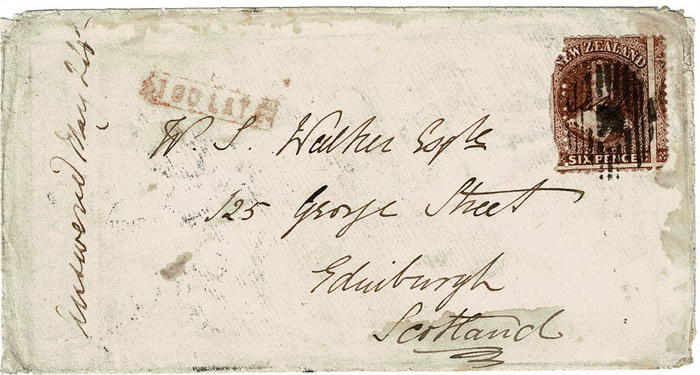 TOO LATE
NEW ZEALAND
SIX PENCE
W S. Walker Esqre
125 George Street
Edinburgh
Scotland
Answered May